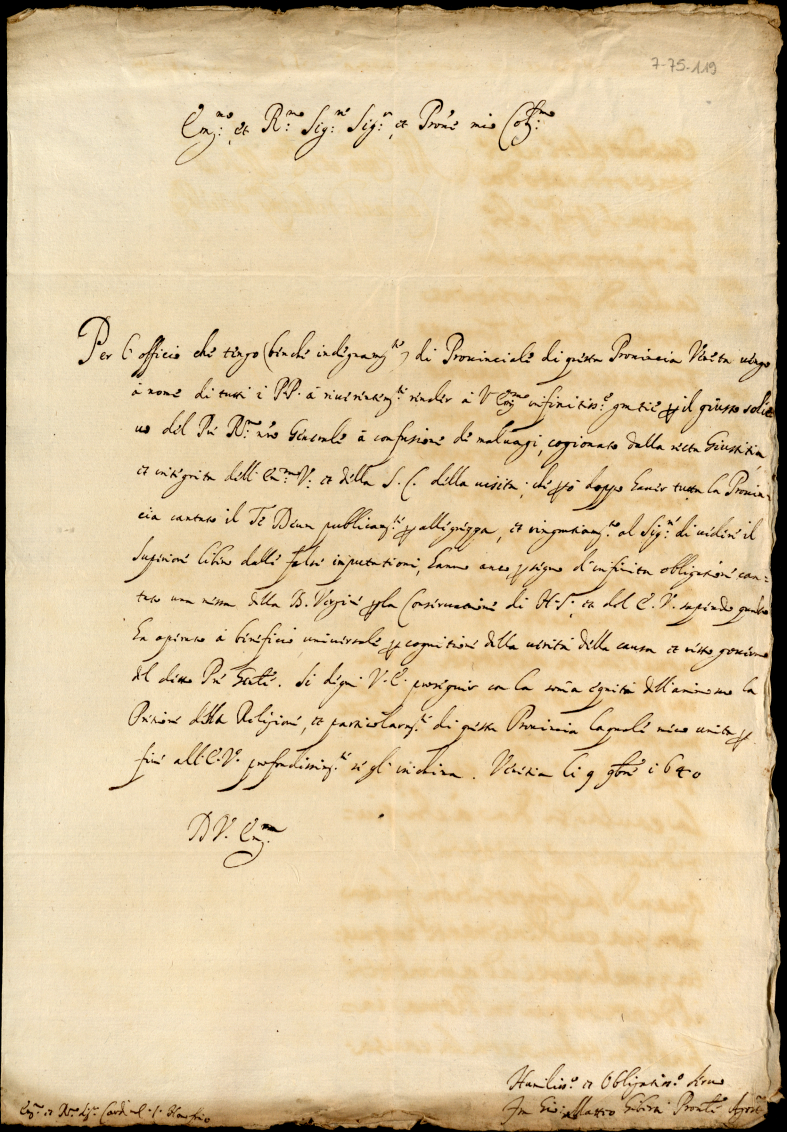 7-75-119
Em:mo et R:mo Sig:re Sig:r et Prone mio Col:mo
Per l'officio che tengo (benche indegnam:te) di Provinciale di questa Provincia Veneta vengo
à nome di tutti i PP. à riverentem:te render à V Em:me infinitiss:e gratie p il giusto solie
vo del Pre R:mo nro Generale à confusione de malvagi, cagionato dalla retta Giustitia
et integrità dell' Em:za V: et della S. C. della visita; che però doppo haver tutta la Provin-
cia cantato il Te Deum publicam:te p allegrezza, et ringratiam:to al Sig:re di veder il
Superiore libero dalle false imputationi, hanno anco p segno d'infinita obligatione can-
tato una messa della B. Vergine p la Conservatione di N. S. et del E. V. sapendo quanto
ha operato à beneficio universale p cognitione della verità della causa et retto governo
del detto Pre Gnle. Si degni V. E. proseguir con la somma equità dell'animo suo la
Protione della Religione, et particolarm:te di questa Provincia la quale meco unita p
fine all' E. V. profondissim:te se gl'inchina. Venetia li 9 9bre 1640
D V. Em:za
Humiliss:o et Obligatiss:o Servo
Fra Gio: Matteo Giberti Provle Agost:no
Em:mo et R:mo Sig:r Card:l S. Honofrio